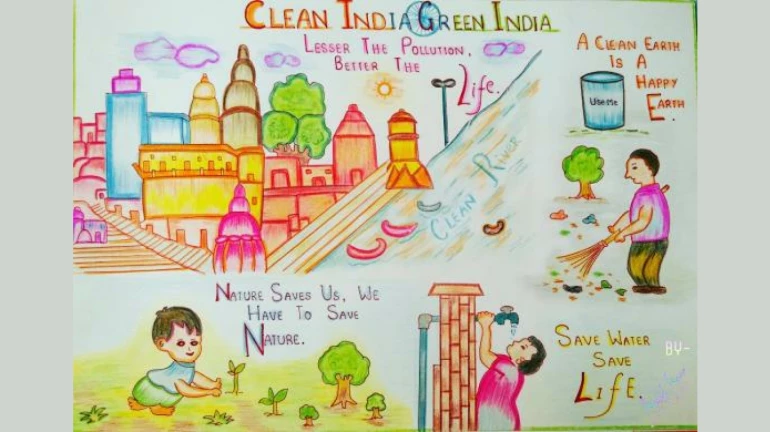 CLEAN INDIA GREEN INDIA
LESSER THE POLLUTION,
BETTER THE
Life.
A CLEAN EARTH
IS A
HAPPY
EARTH.
Use Me
CLEAN RIVER
NATURE SAVES US, WE
HAVE TO SAVE
NATURE.
SAVE WATER
SAVE
LIfE.
BY-